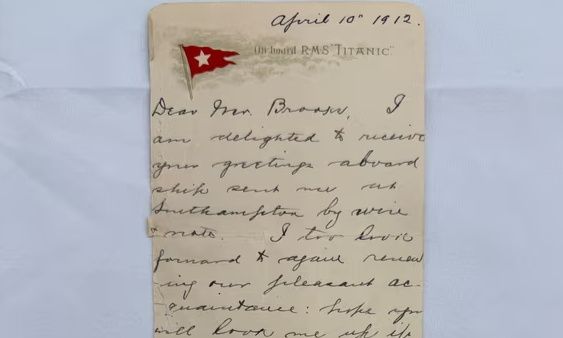 April 10" 1912.
On board R.M.S. "TITANIC"
Dear Mr. Brooks, I
am delighted to receive
your greetings aboard
ship sent me at
Southampton by wire
& note. I too look
forward to again renew
-ing our pleasant ac-
quaintance: hope you
will look me up if